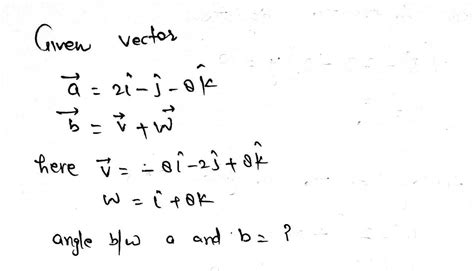 Given vector
a⃗ = 2î - ĵ - θk̂
b⃗ = v⃗ + w⃗
here v⃗ = - θî - 2ĵ + θk̂
w = î + θk
angle b/w a and b = ?